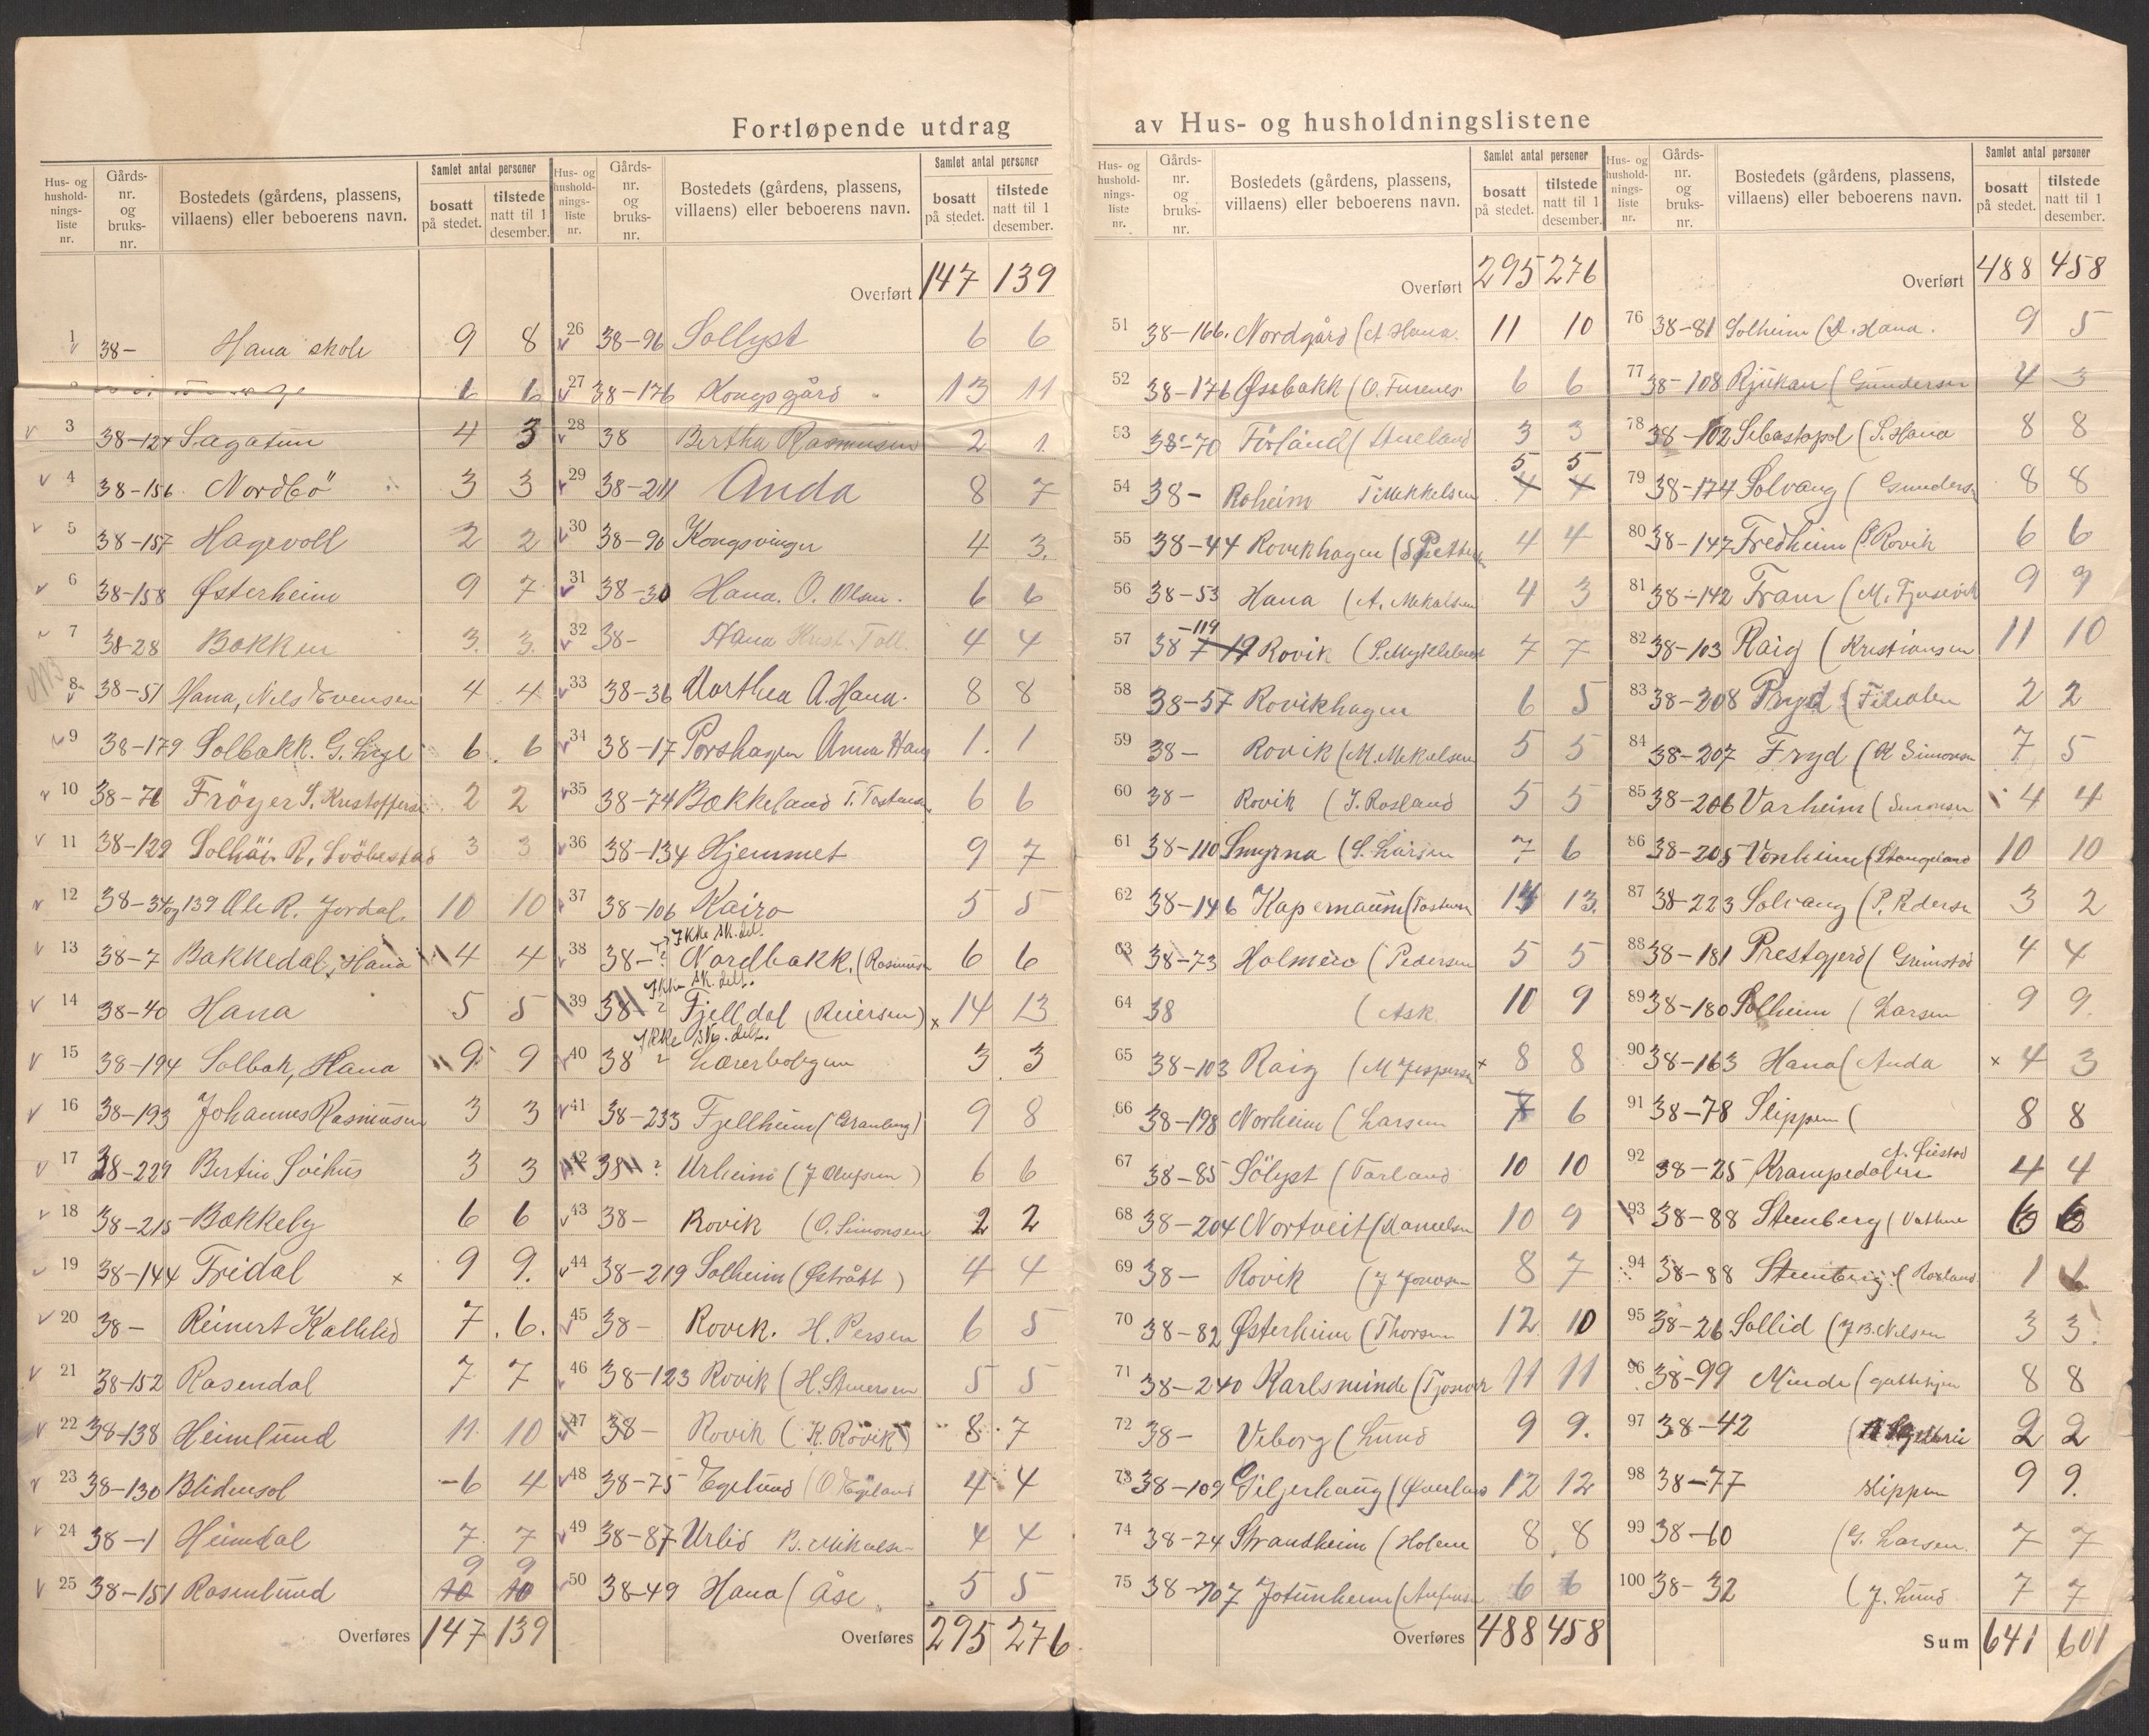 Fortløpende utdrag av Hus- og husholdningslistene
Hus- og hushold- nings- liste nr. | Gårds- nr. og bruks- nr. | Bostedets (gårdens, plassens, villaens) eller beboerens navn. | Samlet antal personer | bosatt på stedet. | tilstede natt til 1 desember.
1 38- Hana skole 9 8
2 6 6
3 38-124 Sagatun 4 3
4 38-156 Nordbö 3 3
5 38-157 Hagevoll 2 2
6 38-158 Østerheim 9 7
7 38-28 Bakken 3. 3.
8 38-51 Hana, Nils Evensen 4 4
9 38-179 Solbakk. G. Lyge 6. 6
10 38-76 Fröyer S. Kristoffersen 2 2
11 38-129 Solhöi R. 3 3
12 38-34 og 139 Ole R. Jordal. 10 10
13 38-7 Bakkedal, Hana 4 4
14 38-40 Hana 5 5
15 38-194 Solbak, Hana 9 9
16 38-193 Johannes Rasmussen 3 3
17 38-229 Bertin Soihus 3 3
18 38-215 Bakkely 6 6
19 38-144 Fridal x 9 9.
20 38- Reinert Kallelid 7. 6.
21 38-152 Rosendal 7 7
22 38-138 Heimlund 11. 10
23 38-130 Blidensol -6 4
24 38-1 Heimdal 7. 7
9 9
25 38-151 Rosenlund 10 10
Overføres 147 139
Hus- og hushold- nings- liste nr. | Gårds- nr. og bruks- nr. | Bostedets (gårdens, plassens, villaens) eller beboerens navn. | Samlet antal personer | bosatt på stedet. | tilstede natt til 1 desember.
Overført 147 139
26 38-96 Sollyst 6 6
27 38-176 Kongsgård 13 11
28 38 Bertha Rasmussen 2 1.
29 38-211 Anda 8 7
30 38-90 Kongsvinger 4 3.
31 38-30 Hana. O. Olsen. 6 6
32 38- Hana Krist. Toll. 4 4
33 38-36 Dorthea A. Hana. 8 8
34 38-17 Porshagen Anna Hana 1. 1
35 38-74 Bakkeland T. Tostensen 6 6
36 38-134 Hjemmet 9 7
37 38-106 Kairo 5 5
Ikke sk. delt.
38 38-? Nordbakk. (Rasmussen 6 6
Ikke sk. delt.
39 38-? Fjelldal (Reiersen) x 14 13
Ikke sk. delt.
40 38 ? Lærerboligen 3 3
41 38-233 Fjellheim (Granberg) 9 8
42 38 ? Urheim (J Olufsen) 6 6
43 38- Rovik (O. Simonsen 2 2
44 38-219 Solheim (Østrått) 4 4
45 38- Rovik. H. Persen 6 5
46 38-123 Rovik (H. Stuersen 5 5
47 38- Rovik (K. Rovik) 8. 7
48 38-75 Egelund (O Egeland 4 4
49 38-87 Urlid B. Mikalsen 4 4
50 38-49 Hana (Åse 5 5
Overføres 295 276
Hus- og hushold- nings- liste nr. | Gårds- nr. og bruks- nr. | Bostedets (gårdens, plassens, villaens) eller beboerens navn. | Samlet antal personer | bosatt på stedet. | tilstede natt til 1 desember.
Overført 295 276
51 38-166. Nordgård (A Hana. 11 10
52 38-176 Øsebakk (O. Furenes. 6 6
53 38-70 Förland (Auseland 3 3
5 5
54 38- Roheim T. Mekkelsen 4 4
55 38-44 Rovikhagen (S Pettersen 4 4
56 38-53 Hana (A. Mekalsen 4 3
-119
57 38 -19 Rovik (S. Myklebust 7 7
58 38-57 Rovikhagen 6 5
59 38- Rovik (M. Mekalsen 5 5
60 38- Rovik (J. Rosland 5 5
61 38-110 Smyrna (S. Larsen 7 6
62 38-146 Kapernaum (Tostensen 14 13.
63 38-73 Holmero (Pedersen 5 5
64 38 (Ask 10 9
65 38-103 Raig (M Jespersen x 8 8
66 38-198 Norheim (Larsen 7 6
67 38-85 Sölyst (Tarland 10 10
68 38-204 Nortveit (Danielsen 10 9
69 38- Rovik (J Jonassen 8 7
70 38-82 Østerheim (Thorsen 12 10
71 38-240 Karlsminde (Tjosevik 11 11
72 38- Viborg (Lund 9 9.
73 38-109 Giljerhaug (Øverland 12 12
74 38-24 Strandheim (Holene 8 8
75 38-707 Jotunheim (Anfinsen 6 6
Overføres 488 458
Hus- og hushold- nings- liste nr. | Gårds- nr. og bruks- nr. | Bostedets (gårdens, plassens, villaens) eller beboerens navn. | Samlet antal personer | bosatt på stedet. | tilstede natt til 1 desember.
Overført 488 458
76 38-81 Solheim (D. Hana. 9 5
77 38-108 Rjukan (Gundersen 4 3
78 38-102 Sebastopol (S. Hana 8 8
79 38-174 Solvang (Gundersen 8 8
80 38-147 Fredheim (P. Rovik 6 6
81 38-142 Fram (M. Tjosevik 9 9
82 38-103 Raig (Kristiansen 11 10
83 38-208 Fryd (Tilialen 2 2
84 38-207 Fryd (K Simonsen 7 5
85 38-206 Varheim (Simonsen 4 4
86 38-205 Vonheim (Stangeland 10 10
87 38-223 Solvang (P. Pedersen 3 2
88 38-181 Prestgjerd (Grimstad 4 4
89 38-180 Solheim (Larsen 9 9.
90 38-163 Hana (Anda x 4 3
91 38-78 Slippen ( 8 8
92 38-25 Krampedalen 4 4
93 38-88 Steenberg (Vathne 6 6
94 38-88 Steenberg (Rosland 1 1
95 38-26 Sollid (J B. Nilsen 3 3.
96 38-99 Minde 8 8
97 38-42 2 2
98 38-77 Slippen 9 9.
99 38-60 (G. Larsen. 7 7
100 38-32 (J. Lund 7 7
Sum 641 601